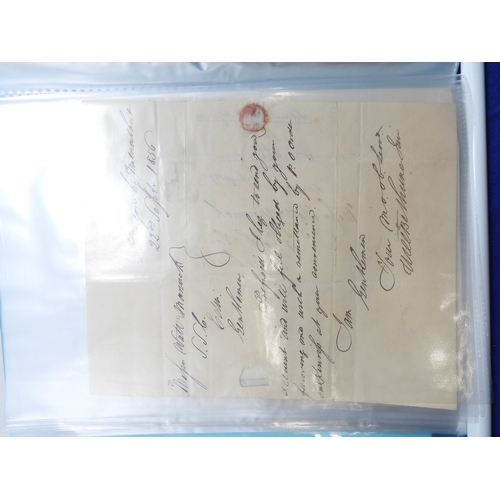 22nd Septr 1856
Messrs Watt
S.S.C.
Edin.
Gentlemen
Prefixed I beg to send you
account and will feel obliged by your
favoring me with a remittance by P. O order
at your convenience
I am Gentlemen
Your Mo Ob Servt